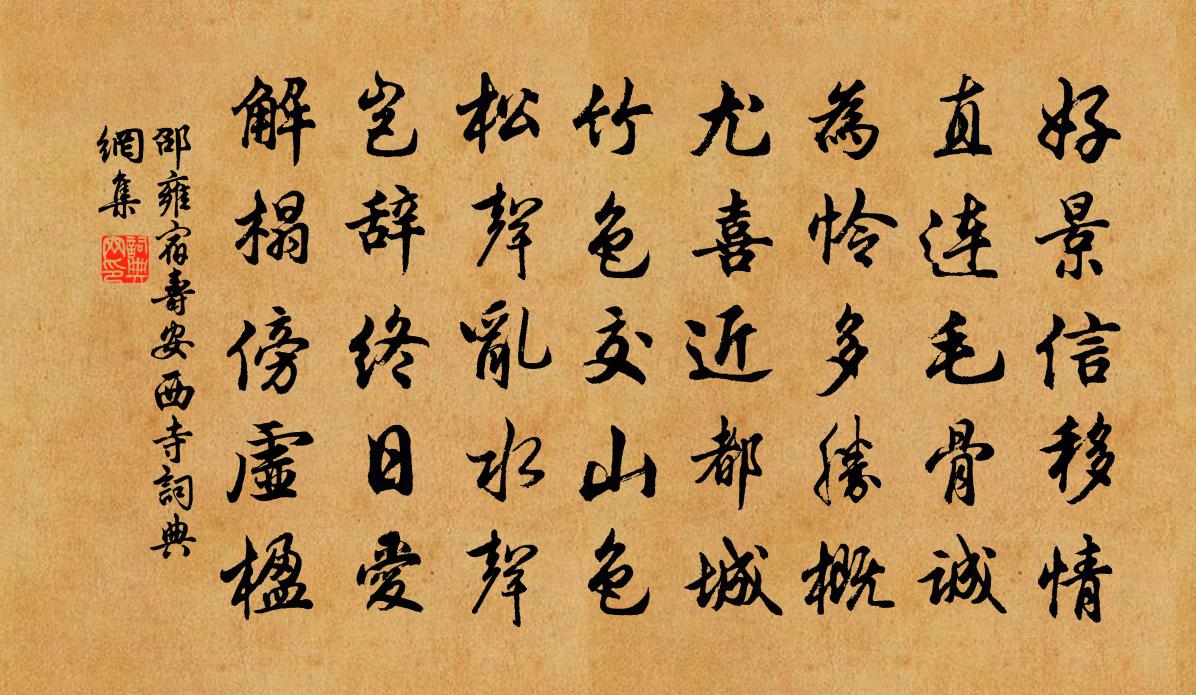 好景信移情
直連毛骨誠
為怜多勝概
尤喜近都城
竹色交山色
松聲亂水聲
豈辞終日愛
解榻傍虛楹
邵雍宿壽安西寺詞典
網集
詞典
网印